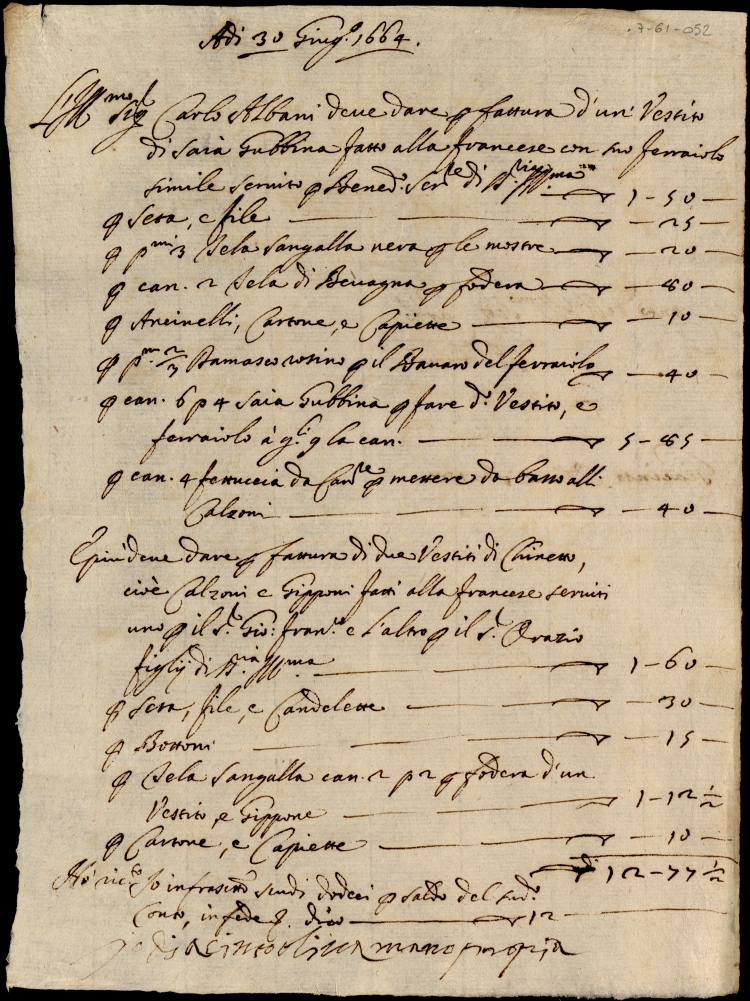 7-61-052
Adi 30 Giug.º 1664.
L'Ill.mo Sig.r Carlo Albani deve dare p fattura d'un Vestito
di Saia Gubbina fatto alla francese con suo ferraiolo
simile servito p Bened.º Ser.le di Ill.ma 1-50
p Seta, e file -25
p pmi 3 Tela Sangalla nera p le mostre -20
p can. 2 Tela di Bevagna p fodera -80
p Ancinelli, Cartone, e Capiette -10
p pm. 2/3 Damasco p il Bavaro del ferraiolo -40
p can. 6 p 4 Saia Gubbina p fare d.º Vestito, e
ferraiolo à g.li 9 la can. 5-85
p can. 4 fettuccia da p mettere da basso alli
Calzoni -40
E più deve dare p fattura di due Vestiti di Chinetto,
cioè Calzoni e Gipponi fatti alla francese serviti
uno p il S.r Gio: Fran.co e L'altro p il S.r Orazio
figlij di Ill.ma 1-60
p Seta, file, e Candelette -30
p Bottoni -15
p Tela Sangalla can. 2 p 2 p fodera d'un
Vestito, e Gippone 1-12 1/2
p Cartone, e Capiette -10
12-77 1/2
Hò Io infrascritto scudi dodeci p saldo del sud.º
Conto, in fede dico 12
Io mano propria